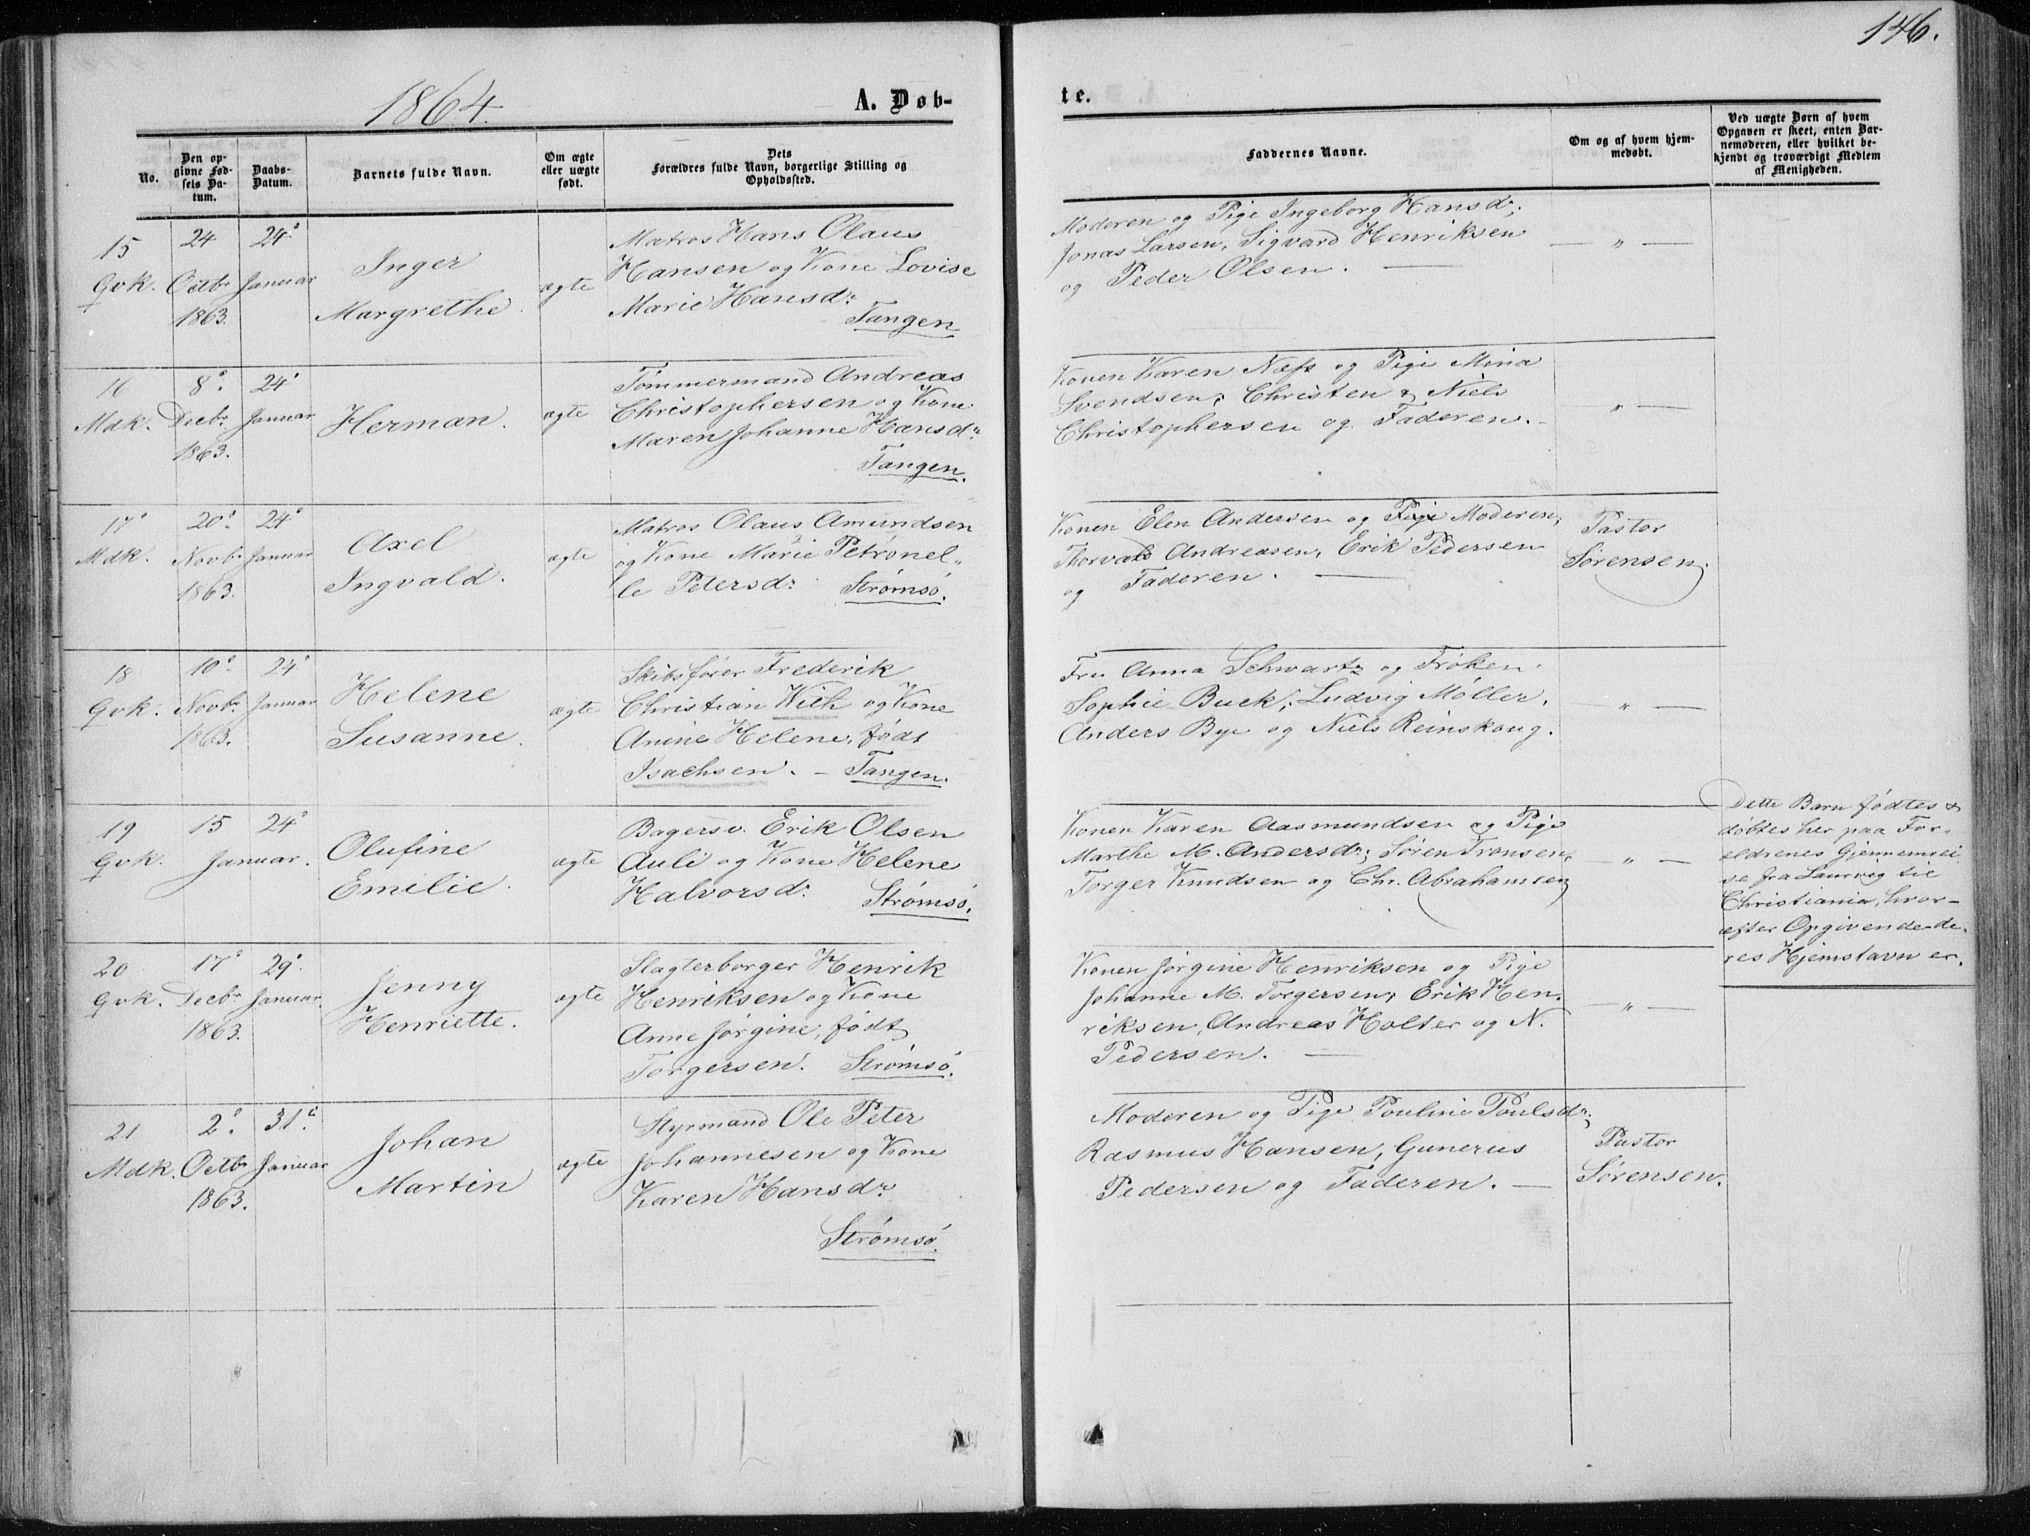 146.
1864.
A. Døb-
te.
No.
Den op-
givne Fød-
sels Da-
tum.
Daabs-
Datum.
Barnets fulde Navn.
Om ægte
eller uægte
født.
Dets
Forældres fulde Navn, borgerlige Stilling og
Opholdssted.
Faddernes Navne.
Om og af hvem hjem-
medøbt.
Ved uægte Børn af hvem
Opgaven er skeet, enten Bar-
nemoderen, eller hvilket be-
kjendt og troværdigt Medlem
af Menigheden.
15
Qvk.
24
Octbr
1863.
24de
Januar
Inger
Margrethe.
ægte
Matros Hans Olaus
Hansen og Kone Lovise
Marie Hansdr
Tangen
Moderen og Pige Ingeborg Hansdr;
Jonas Larsen, Sigvard Henriksen
og Peder Olsen. —
— " —
16
Mdk.
8de
Decbr
1863.
24de
Januar
Herman.
ægte
Tømmermand Andreas
Christophersen og Kone
Maren Johanne Hansdr
Tangen.
Konen Karen Næss og Pige Mina
Svendsen; Christen & Niels
Christophersen og Faderen. -
" —
17
Mdk.
20de
Novbr
1863.
24de
Januar
Axel
Ingvald.
ægte
Matros Olaus Amundsen
og Kone Marie Petronel-
le Petersdr Strømsø.
Konen Elen Andersen og Pige Moderen,
Thorvald Andreasen, Erik Pedersen
og Faderen. —
Pastor
Sørensen.
18
Qvk.
10de
Novbr
1863.
24de
Januar
Helene
Susanne.
ægte
Skibsfører Frederik
Christian Wich og Kone
Anine Helene, født
Isachsen. - Tangen.
Fru Anna Schwartz og Frøken
Sophie Buck; Ludvig Møller,
Anders Bye og Niels Reinskoug.
— " —
19
Qvk.
15
Januar.
24de
Olufine
Emilie.
ægte
Bagersv. Erik Olsen
Auli og Kone Helene
Halvorsdr Strømsø.
Konen Karen Aasmundsen og Pige
Marthe M. Andersdr; Søren Tronsen,
Torger Knudsen og Chr. Abrahamsen
" —
Dette Barn fødtes &
døbtes her paa For-
ældrenes Gjennemrei-
se fra Laurvig til
Christiania, hvor-
efter Opgivende de-
res Hjemstavn er.
20
Qvk.
17de
Decbr
1863.
29de
Januar.
Jenny
Henriette.
ægte
Slagterborger Henrik
Henriksen og Kone
Anne Jørgine, født
Torgersen. Strømsø.
Konen Jørgine Henriksen og Pige
Johanne M. Torgersen; Erik Hen-
riksen, Andreas Holter og N.
Pedersen. —
— " —
21
Mdk.
2de
Octbr
1863.
31te
Januar
Johan
Martin
ægte
Styrmand Ole Peter
Johannesen og Kone
Karen Hansdr
Strømsø.
Moderen og Pige Pouline Poulsdr;
Rasmus Hansen, Gunerus
Pedersen og Faderen. —
Pastor
Sørensen.